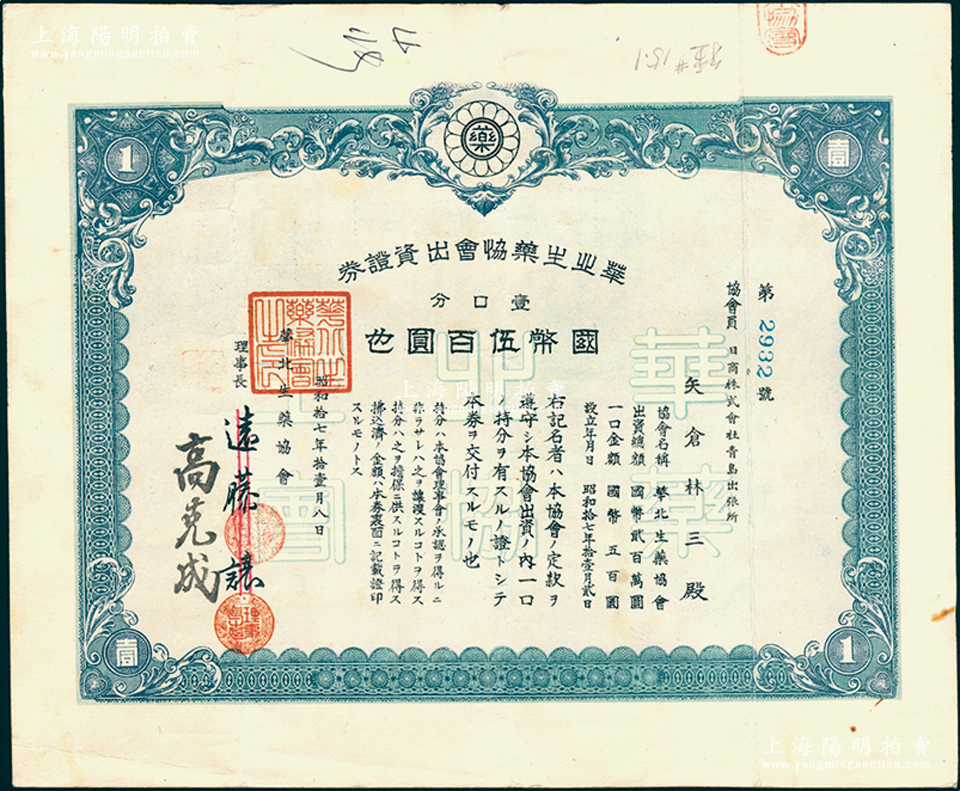 上海陽明拍賣
www.yangmingauction.com
協會
#151
1
藥
壹
華北生藥協會出資證券
壹口分
國幣伍百圓也
第2932號
協會員 日商株式會社青島出張所
矢倉林三殿
協會名稱 華北生藥協會
出資總額 國幣貳百萬圓
一口金額 國幣五百圓
設立年月日 昭和拾七年拾壹月貳日
右記名者ハ本協會ノ定款ヲ
遵守シ本協會出資ノ內一口
ノ持分ヲ有スルノ證トシテ
本券ヲ交付スルモノ也
持分ハ本協會理事會ノ承認ヲ得ルニ
非ヲサレハ之ヲ讓渡スルコトヲ得ス
持分ハ之ヲ擔保ニ供スルコトヲ得ス
拂込濟ノ金額ハ本券裏面ニ記載證印
スルモノトス
昭和拾七年拾壹月八日
華北生藥協會
理事長 遠藤讓
高克成
華北生藥協會之印
華藥
北協
生會
上海陽明拍賣
壹
1
上海陽明拍賣
www.yangmingauction.com